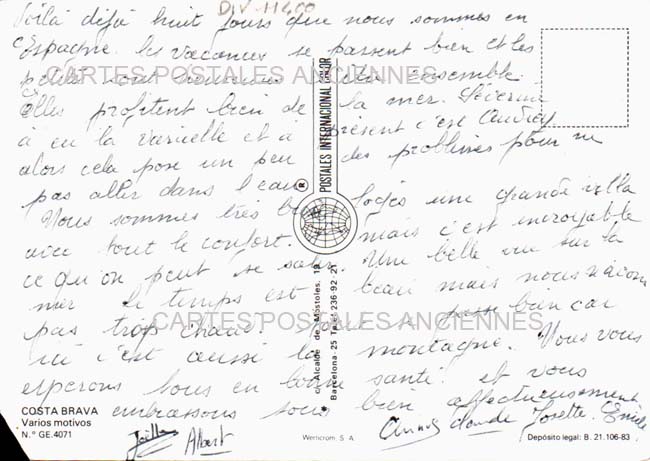 DIV-11400
Voilà déjà huit jours que nous sommes en
Espagne. les vacances se passent bien et les
petites sont heureuses d'être ensemble.
elles profitent bien de la mer. Séverine
a eu la varicelle et a présent c'est Audrey
alors cela pose un peu des problèmes pour ne
pas aller dans l'eau.
Nous sommes très bien logés une grande villa
avec tout le confort. mais c'est incroyable
ce qu'on peut se salir. Une belle vue sur la
mer. le temps est beau mais nous n'avons
pas trop chaud. bien car
ici c'est aussi la montagne. Nous vous
esperons tous en bonne santé et vous
embrassons tous bien affectueusement
Joëlle Albert Annie Claude Josette. Emile
CARTES POSTALES ANCIENNES
CARTES POSTALES ANCIENNES
POSTALES INTERNACIONAL COLOR
®
c/. Alcalde de Móstoles, 19
Barcelona-25 Tel. 236 92 21
COSTA BRAVA
Varios motivos
N.º GE.4071
Wernicrom S. A.
Depósito legal: B. 21.106-83